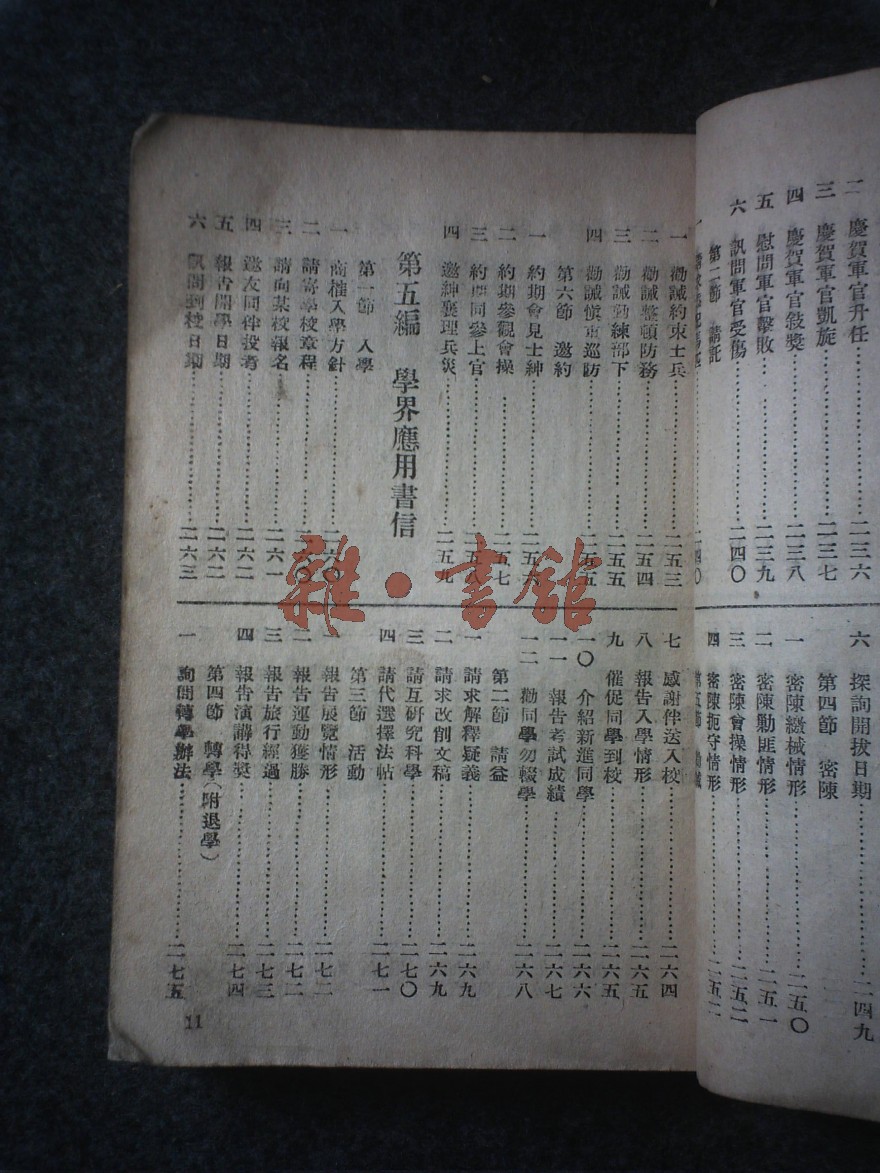 二 慶賀軍官升任……二三六
三 慶賀軍官凱旋……二三七
四 慶賀軍官敍獎……二三八
五 慰問軍官擊敗……二三九
六 訊問軍官受傷……二四〇
第二節 請託
二四〇
六 探詢開拔日期……二四九
第四節 密陳
一 密陳繳械情形……二五〇
二 密陳勦匪情形……二五一
三 密陳會操情形……二五二
四 密陳扼守情形……二五二
第五節 勸誡
一 勸誡約束士兵……二五三
二 勸誡整頓防務……二五四
三 勸誡勤練部下……二五五
四 勸誡愼重巡防……二五五
第六節 邀約
一 約期會見士紳……二五六
二 約期參觀會操……二五七
三 約期同參上官……二五八
四 邀紳襄理兵災……二五九
第五編 學界應用書信
第一節 入學
一 商榷入學方針……二六〇
二 請寄學校章程……二六〇
三 請向某校報名……二六一
四 邀友同伴投考……二六二
五 報吿開學日期……二六二
六 訊問到校日期……二六三
七 感謝伴送入校……二六四
八 報吿入學情形……二六五
九 催促同學到校……二六五
一〇 介紹新進同學……二六六
一一 報吿考試成績……二六七
一二 勸同學勿輟學……二六八
第二節 請益
一 請求解釋疑義……二六九
二 請求改削文稿……二六九
三 請互研究科學……二七〇
四 請代選擇法帖……二七一
第三節 活動
一 報吿展覽情形……二七二
二 報吿運動獲勝……二七二
三 報吿旅行經過……二七三
四 報吿演講得獎……二七四
第四節 轉學(附退學)
一 詢問轉學辦法……二七五
11
雜·書館